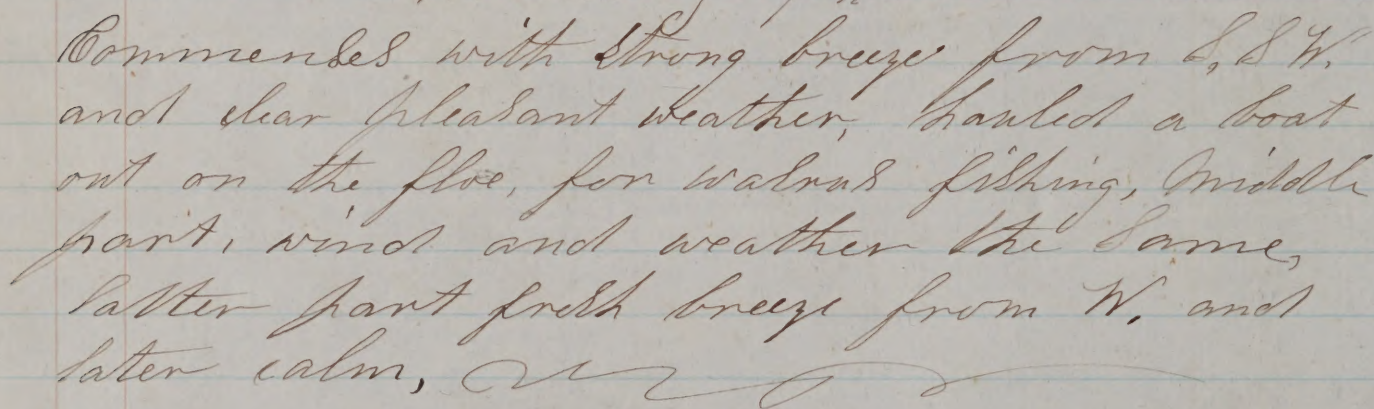 Commenses with strong breeze from S, S W.
and clear pleasant weather, hauled a boat
out on the floe, for walrus fishing, Middle
part, wind and weather the same,
latter part fresh breeze from W. and
later calm,